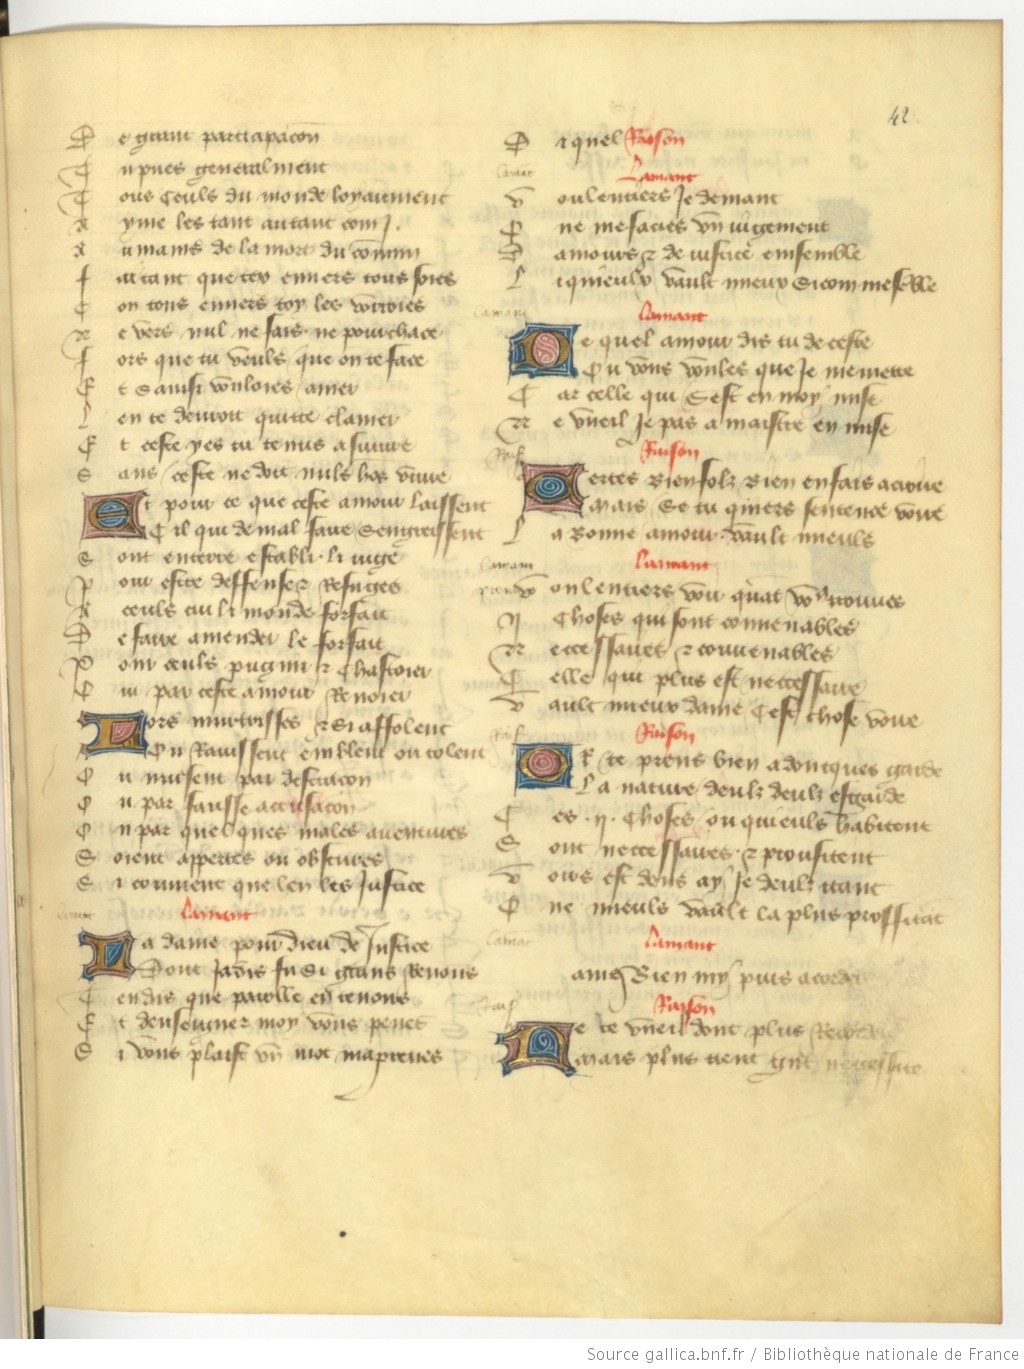 42
De grant participacon
Tu pues generalment
Tous ceuls du monde loyaument
Ayme les tant autant com j.
Au mains de lamor du cõmun
fai tant que tex enuers tous soies
Con tous enuers toy les vorroies
Ne vers nul ne fais ne pourchace
fors que tu veuls que on te face
Et Sainsi vouloies amer
Len te deuroit quitte clamer
Et ceste yes tu tenus a suiure
Sans ceste ne doit nuls hõs viure
Et pour ce que ceste amour laissent
Cil qui de mal faire sengressent
Sont en terre establi li iuge
Pour estre deffense z Refuge
A ceuls cui li monde forfait
De faire amender le forfait
Pour ceuls pugnir z Chastoier
Qui par ceste amour Renoier
Lors murtrisses z Si affolent
Ou Rauissent emblent ou tolent
Ou nuisent par destracon
Ou par fausse accusacon
Ou par quelques males auentures
Soient appertes ou obscures
Si conuient que len les Justice
Lamant
Ha dame pour dieu de Justice
Dont Jadis fu Si grans Renons
Tendis que parolle en tenons
Et denseigner moy vous penes
Si vous plaist vn mot mapreues
Di quel Raison
Lamant
Voulentiers Je demant
Que me facies vn iugement
Damours z de iustice ensemble
Li quieulx vault mieux Si com me sẽble
Lamant
De quel amour dis tu de ceste
Ou vous voules que Je me mette
Car celle qui Sest en moy mise
Ne vueil Je pas a maistre en mise
Raison
Certes Bien folz Bien en fais a croire
Mais Se tu quiers sentence voire
La Bonne amour vault mieuls
Lamant
Voulentiers
Choses qui sont conuenables
Neccessaires z couuenables
Celle qui plus est neccessaire
Vault mieux dame Cest chose voire
Raison
Or te prens bien adoncques garde
La nature deulz deulz esgarde
Ces .ij. Choses ou quieuls habitent
Sont neccessaires z proufitent
Voirs est dons ay Je deulz itant
Que mieuls vault la plus proffitãt
Lamant
Bien my puis acorder
Raison
Ne te vueil dont plus
Mais plus tient grãt neccessite